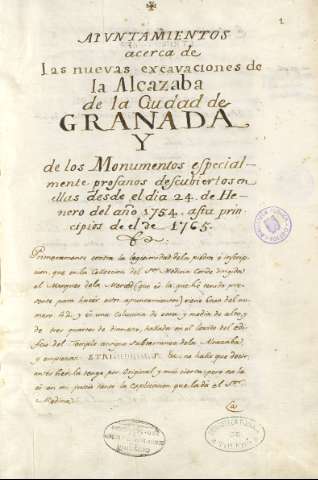 1
APUNTAMIENTOS
acerca de
las nuevas excavaciones de
la Alcazaba
de la Ciudad de
GRANADA
Y
de los Monumentos especial-
mente profanos descubiertos en
ellas desde el dia 24. de He-
nero del año 1754. asta prin-
cipios de el de 1765.
Primeramente contra la legitimidad de la piedra ò inscrip-
cion, que en la Coleccion del Sr. Medina Conde dirigida
al Marques de la Merced (que es la que hè tenido pre-
sente para hacer estos apuntamientos) viene baxo del nu-
mero 1. di. y es una Coluna de vara y media de alto, y
de tres quartas de diametro, hallada en el sitio del edi-
ficio del Templo antiguo subterraneo de la Alcazaba,
y empieza: &c. no hallo que decir,
antes bien la tengo por Original, y mui cierta; pero no la
es en mi juicio tanto la explicacion que la dà el Sr.
Medina.
(a)